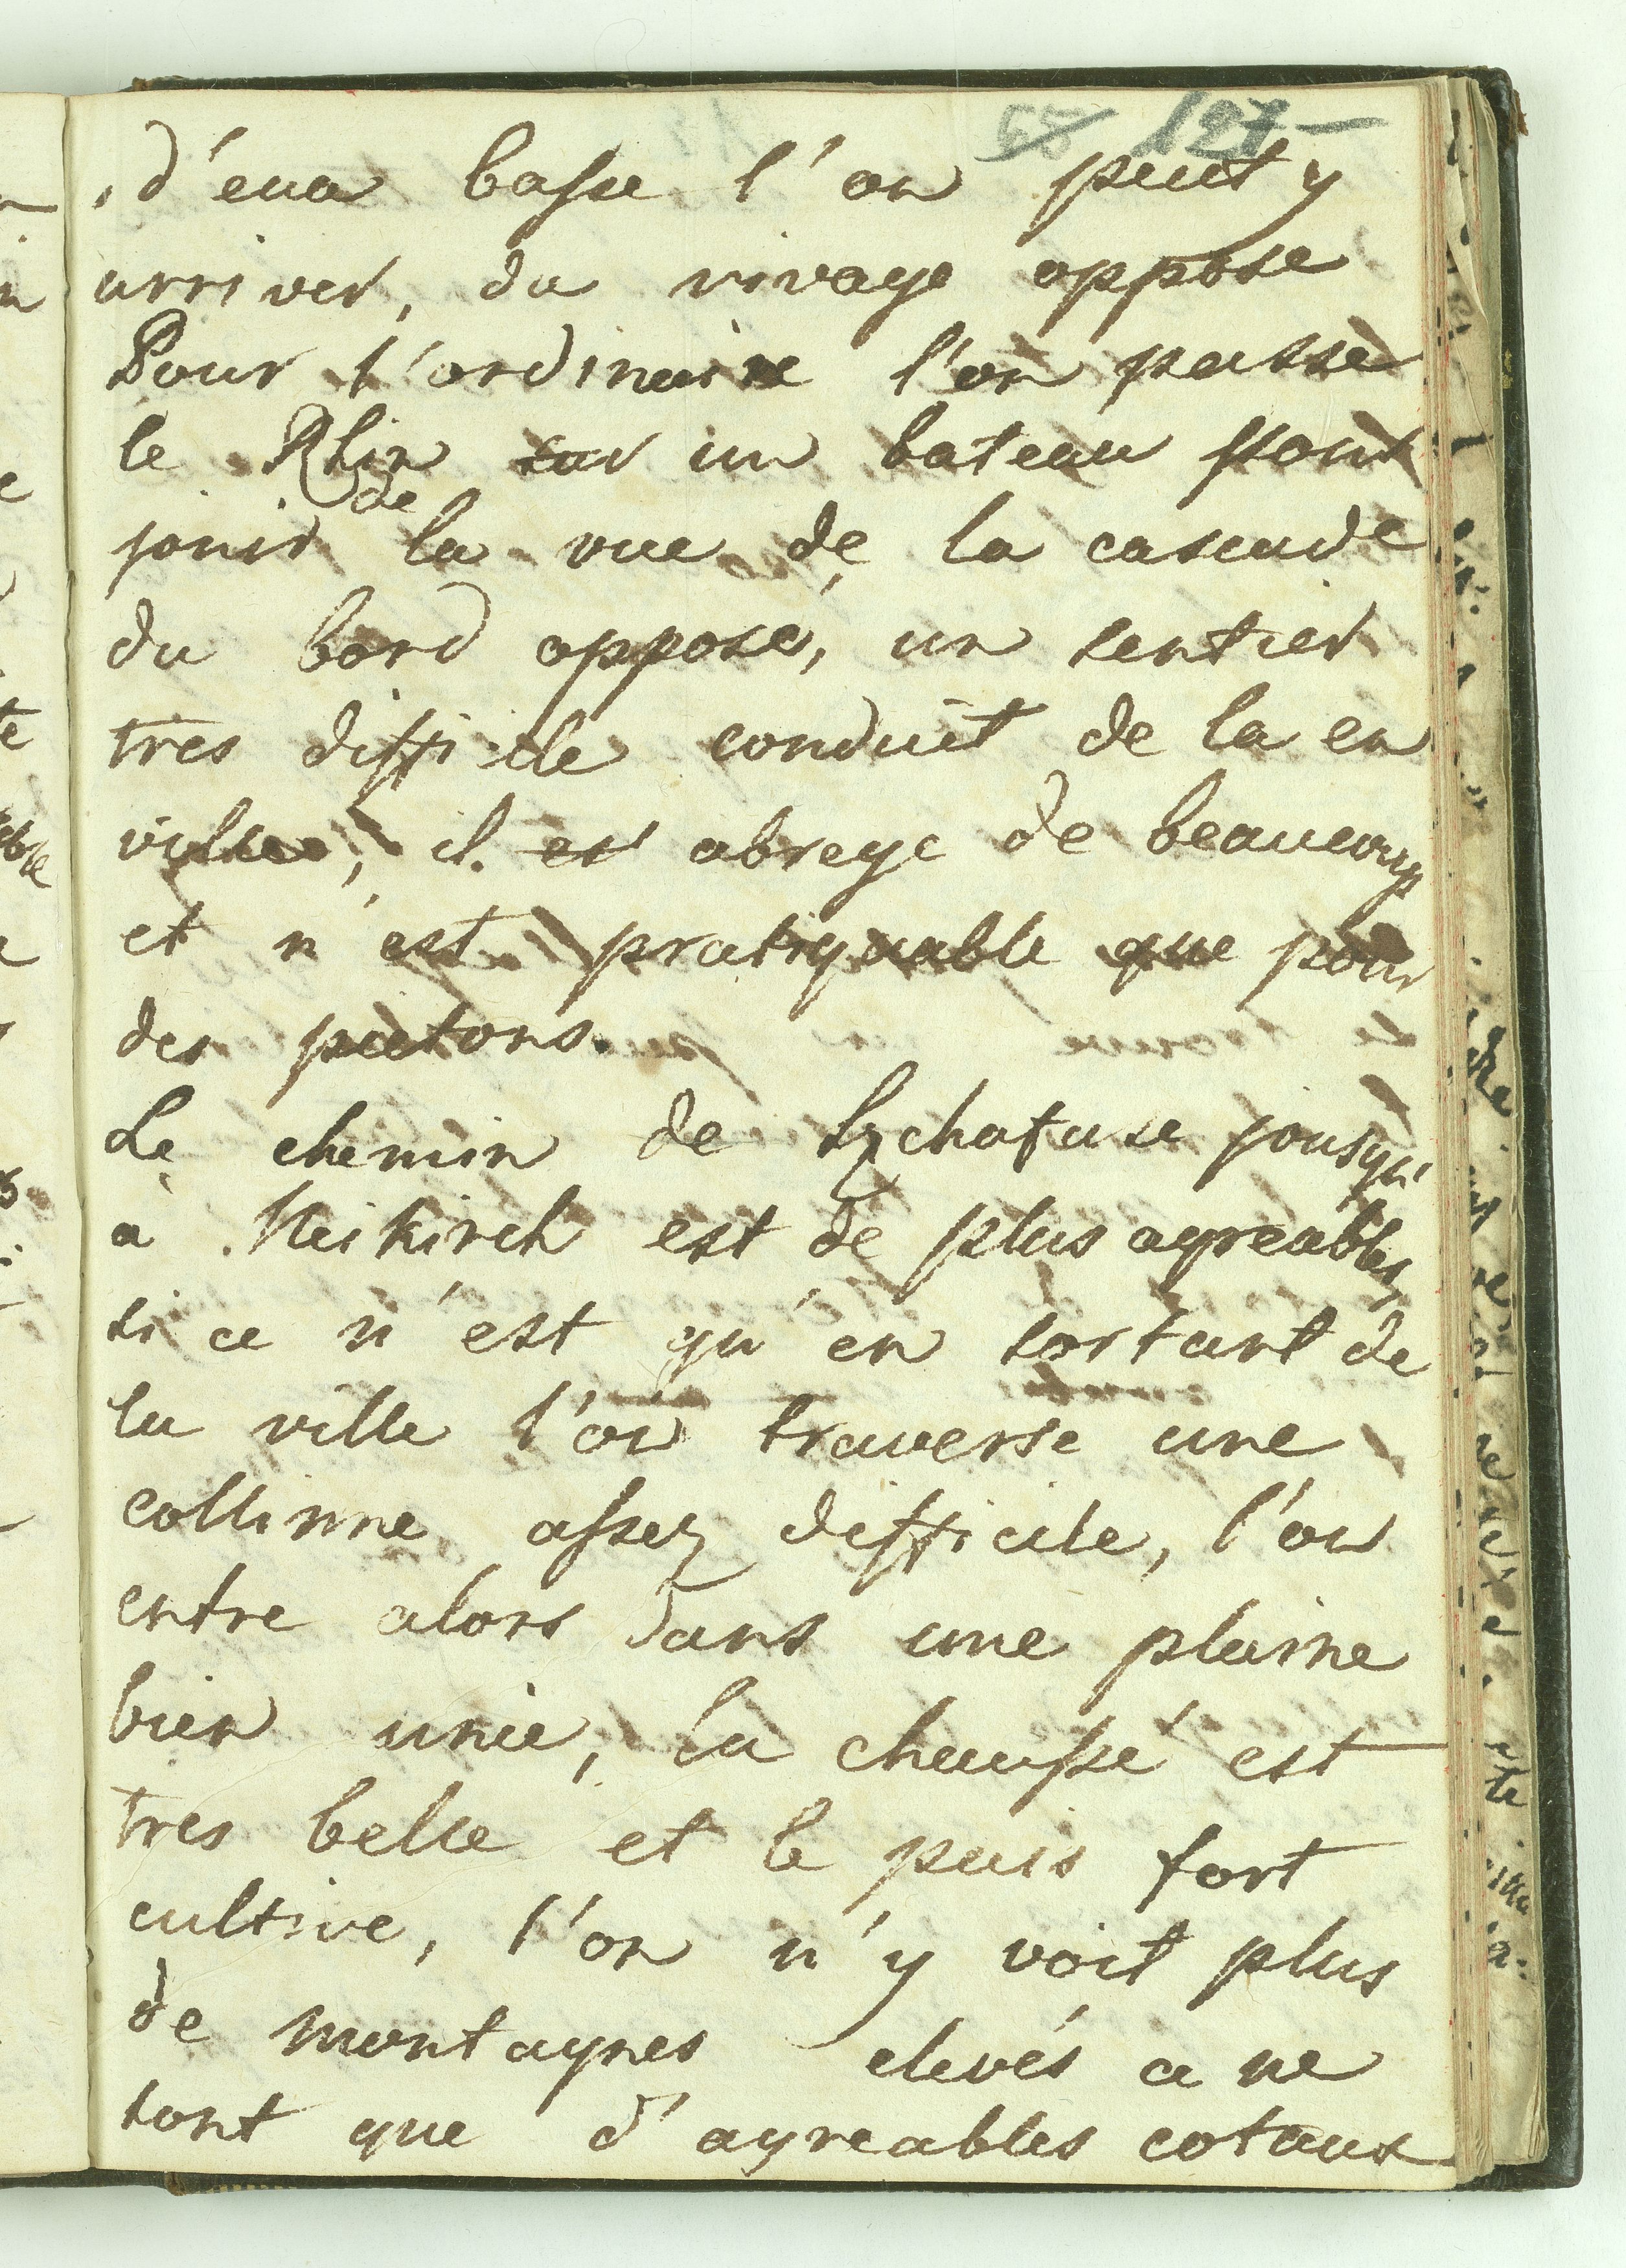 127
d'eua basse l'on peut y
arriver, du rivage opposé
Pour l'ordinaire l'on passe
le Rhin sur un bateau pour
jouir de la vue de la cascade
du bord opposé, un sentier
tres difficile conduit de la en
ville, il est abregé de beaucoup
et n'est pratiquable que pour
des pietons.
Le chemin de Schafuse jousqu'
a Meikirch est de plus agreables
si ce n'est qu'en sortant de
la ville l'on traverse une
collinne assez difficile, l'on
entre alors dans une plaine
bien unie, la chaussé est
tres belle et le pais fort
cultive, l'on n'y voit plus
de montagnes elevés ce ne
sont que d'agreables cotaux